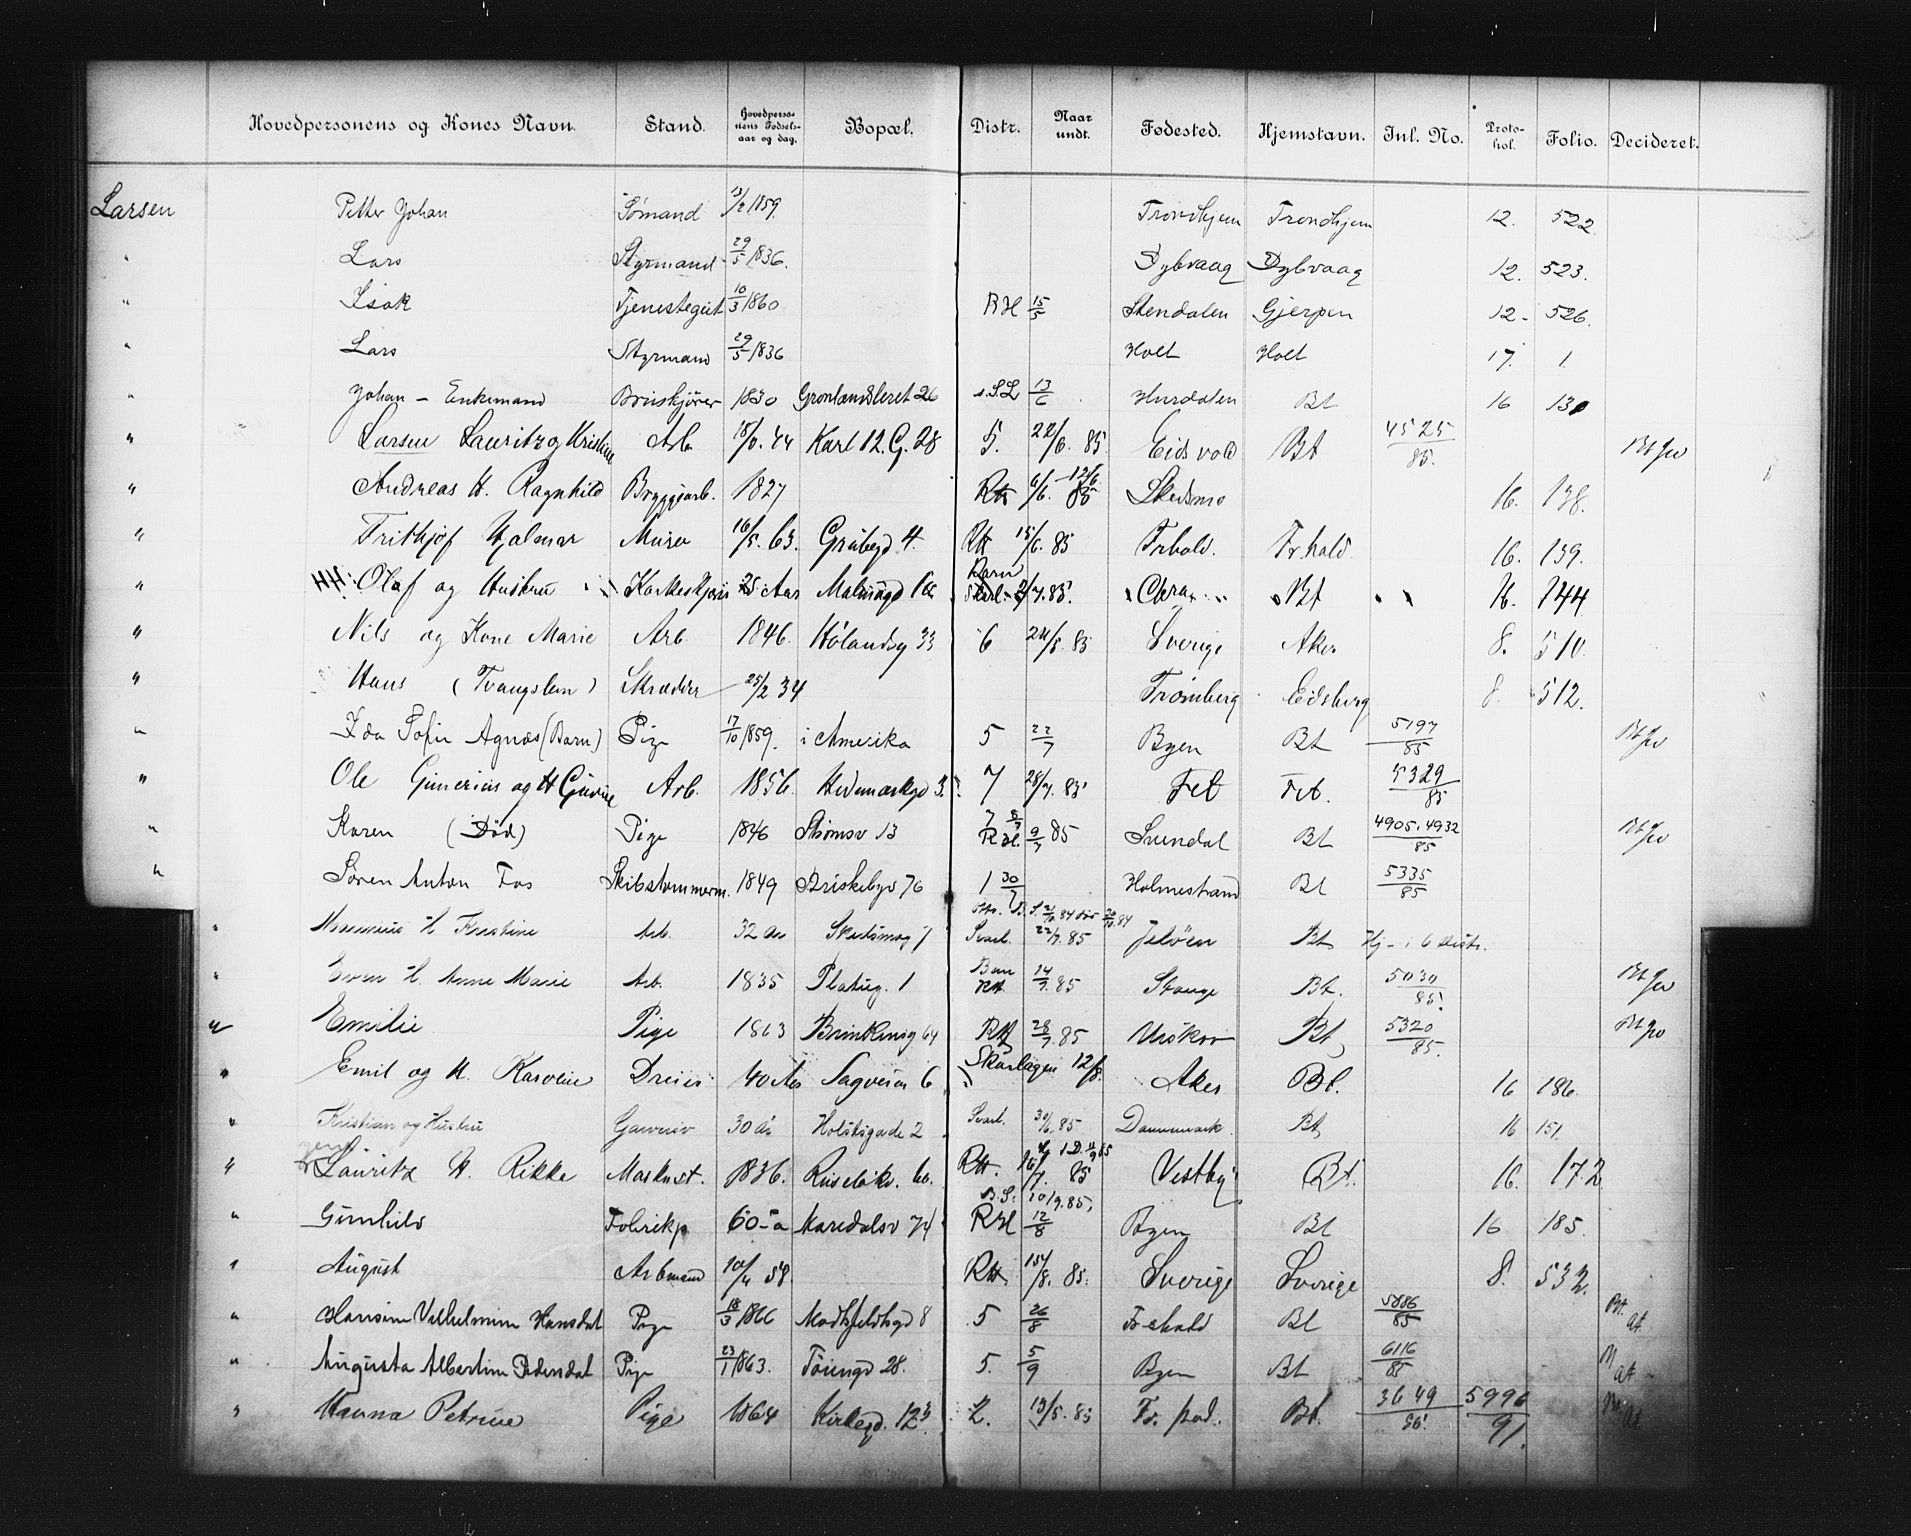 Hovedpersonens og Kones Navn. Stand. Hovedpersonens Fødselsaar og dag. Bopæl. Distr. Naar undt. Fødested. Hjemstavn. Inl. No. Protokol. Folio. Decideret.
Larsen Petter Johan Sømand 13/2 1859. Trondhjem Trondhjem 12. 522.
" Lars Styrmand 29/5 1836. Dybvaag Dybvaag 12. 523.
" Isak Tjenestegut 10/3 1860 RH 15/5 Stendalen Gjerpen 12- 526.
" Lars Styrmand 29/5 1836 Holt Holt 17. 1.
" Johan - Enkemand Bruskjører 1830 Grønlandsleret 26 13/6 Hurdalen Bt 16 130
" Larsen Lauritz og Kristine Arb. 44 Karl 12. G. 28 5. 22/6. 85. Eidsvold Bt 4525/85.
" Andreas H. Ragnhild Bryggearb. 1827 6/6. 85 Skedsmo 16. 138.
" Frithjof Hjalmar Murer 16/5. 63. Grübegd 4. RH 15/6. 85 Frhald. Fr.hald 16. 139.
" HH. Olaf og Hustru 25 Aar Malmøgd 2/7. 85. Bt 16. 144
" Nils og Kone Marie Arb. 1846. Hölandsg 33 6 Sverige Aker 8. 510.
" Hans (Tvangslem) Skrædder 25/2 34 Trømborg Eidsberg 8. 512.
" Ida Sofie Agnæs (Barn) Pige 17/10 1859. i Amerika 5 22/7 Byen Bt 5197/85
" Ole Gunerius og H Gurine Arb. 1856. Hedemarkgd 3. 7 28/7. 85 Fet Fet. 5329/85
" Karen (Død) Pige 1846 Strømsv 13 RH. 9/7 85 Bt 4905. 4932/85
" Søren Anton Fos Skibstømmerm. 1849 Briskebyv 76 1 30/7 Holmestrand Bt 5335/85
" H Kristine Arb. 32 Aar Skedsmog 7 Svarl. 22/7. 85 Jeløen Bt Hj - i 6 distr.
" Even H. Anne Marie Arb. 1835 Platug. 1 14/7. 85 Stange Bt. 5030/85
" Emilie Pige 1863 Brinkensg 64 RH 28/7. 85 Bt 5320/85.
" Emil og H. Karoline Dreier 40 Aar Sagveien 6 Skarlagen 12/8. Aker Bt. 16 186.
" Kristian og Hustru Garver 30 år Holstsgade 2 Svarl. 30/6. 85 Dannemark. Bt 16 151.
" Lauritz H. Rikke Maskinst. 1836. Ruseløkv. 60. RH. 85 Vestby Bt. 16. 172
" Gunhild Fabrikp 60 Maridalsv 74 RH 12/8 B.S. 10/9. 85, Byen Bt 16 185.
" August Arbmand 58. RH 85. Sverige Sverige 8. 532.
" Hansine Vilhelmine Hansdat Pige 18/3 1866 5 26/8 Frhald Bt 5886/85 Bt. at.
" Augusta Albertine Pedersdat Pige 23/1 1863. Töiengd 28. 5. 5/9 Byen Bt 6116/85 at
" Hanna Petrine Pige 1864 Kirkegd. 12 2. 13/5. 85 Bt. 3649/85 5996/91.